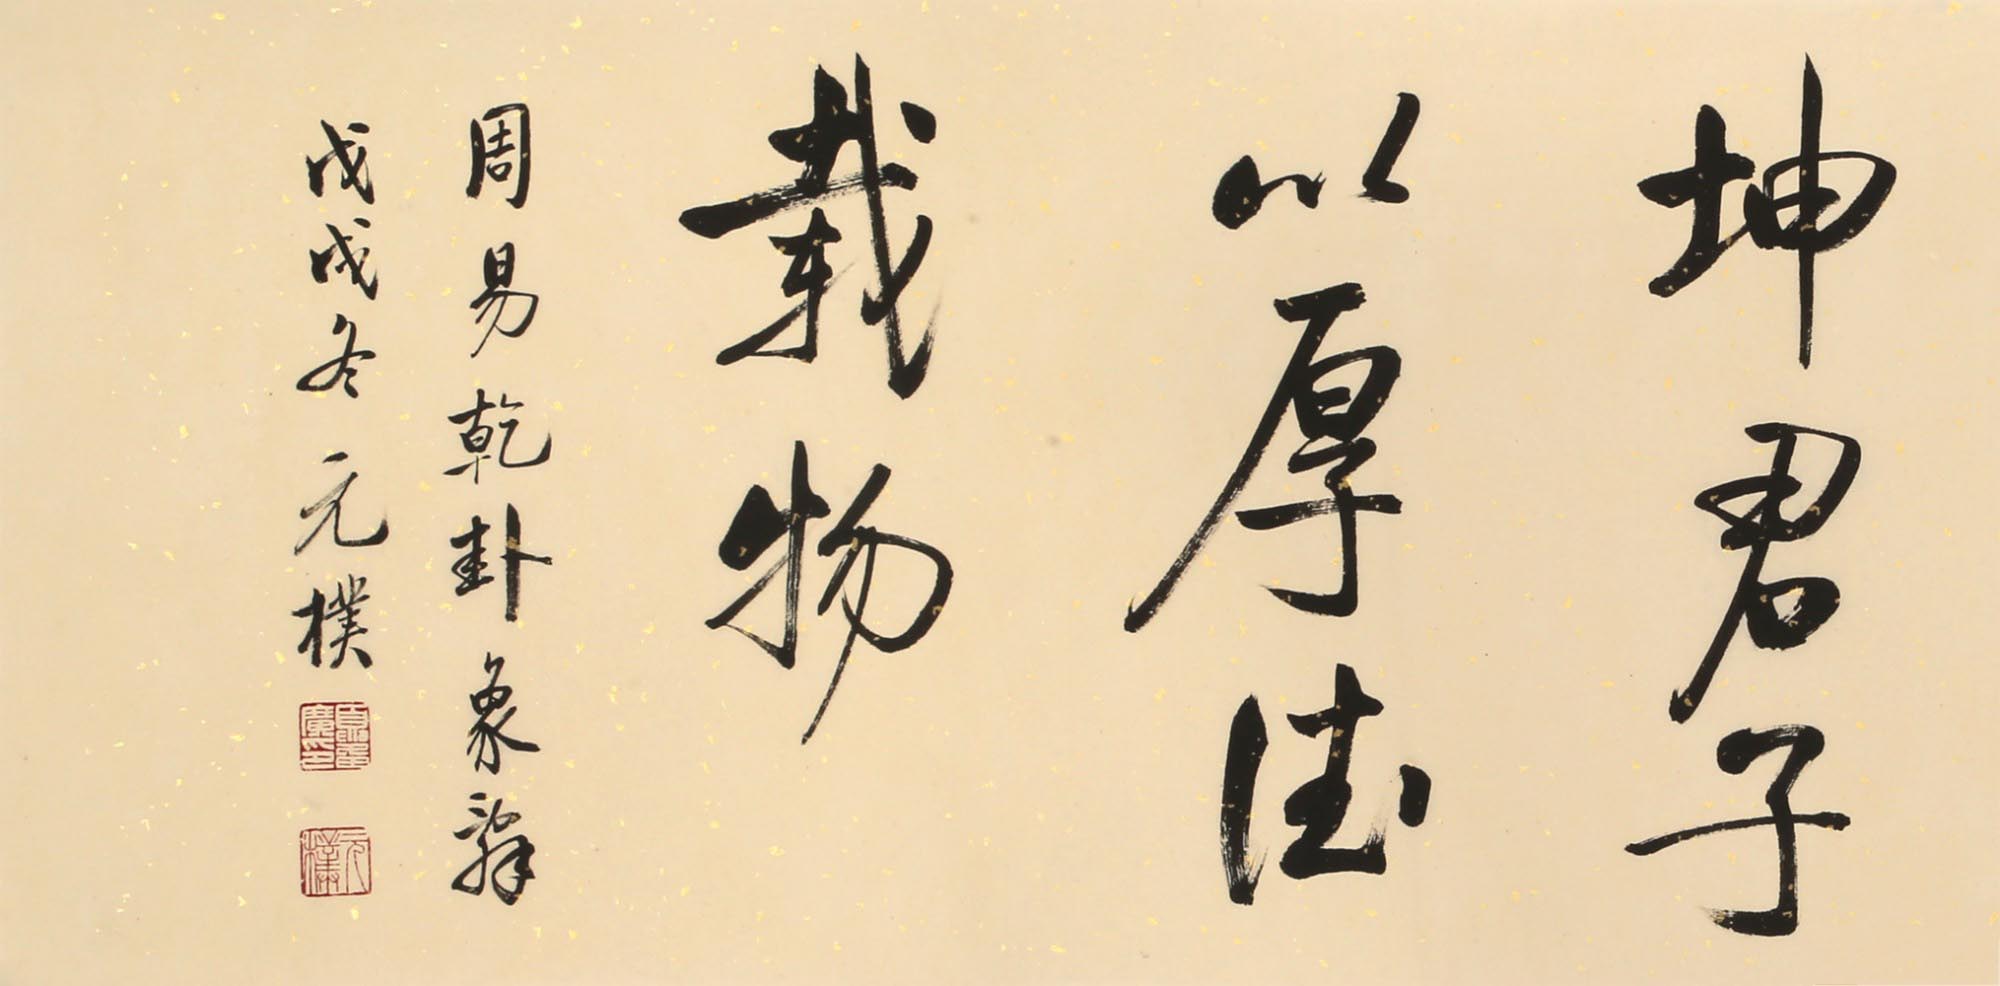 坤君子
以厚德
載物
周易乾卦象辭
戊戌冬元樸
元樸